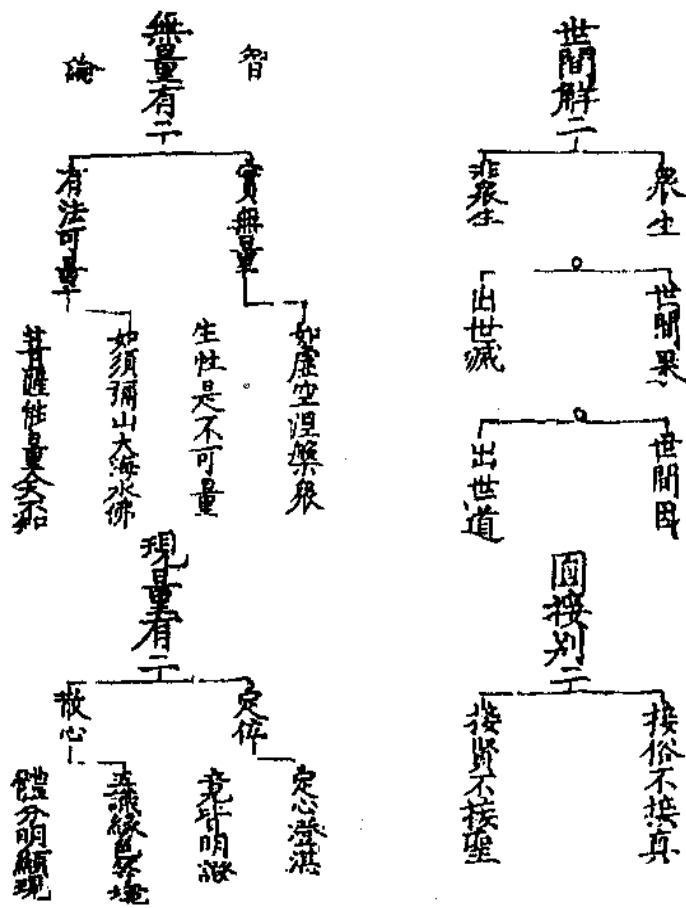 世間解二
衆生
非衆生
世間果
出世滅
世間因
出世道
圓接別二
接俗不接真
接賢不接聖
智
論
無量有二
實無量
如虛空涅槃衆
生性是不可量
有法可量
如須彌山大海水佛
菩薩能量人天不知
現量有二
定位
定心澄湛
境皆明證
散心
五識緣色等境
體分明顯現